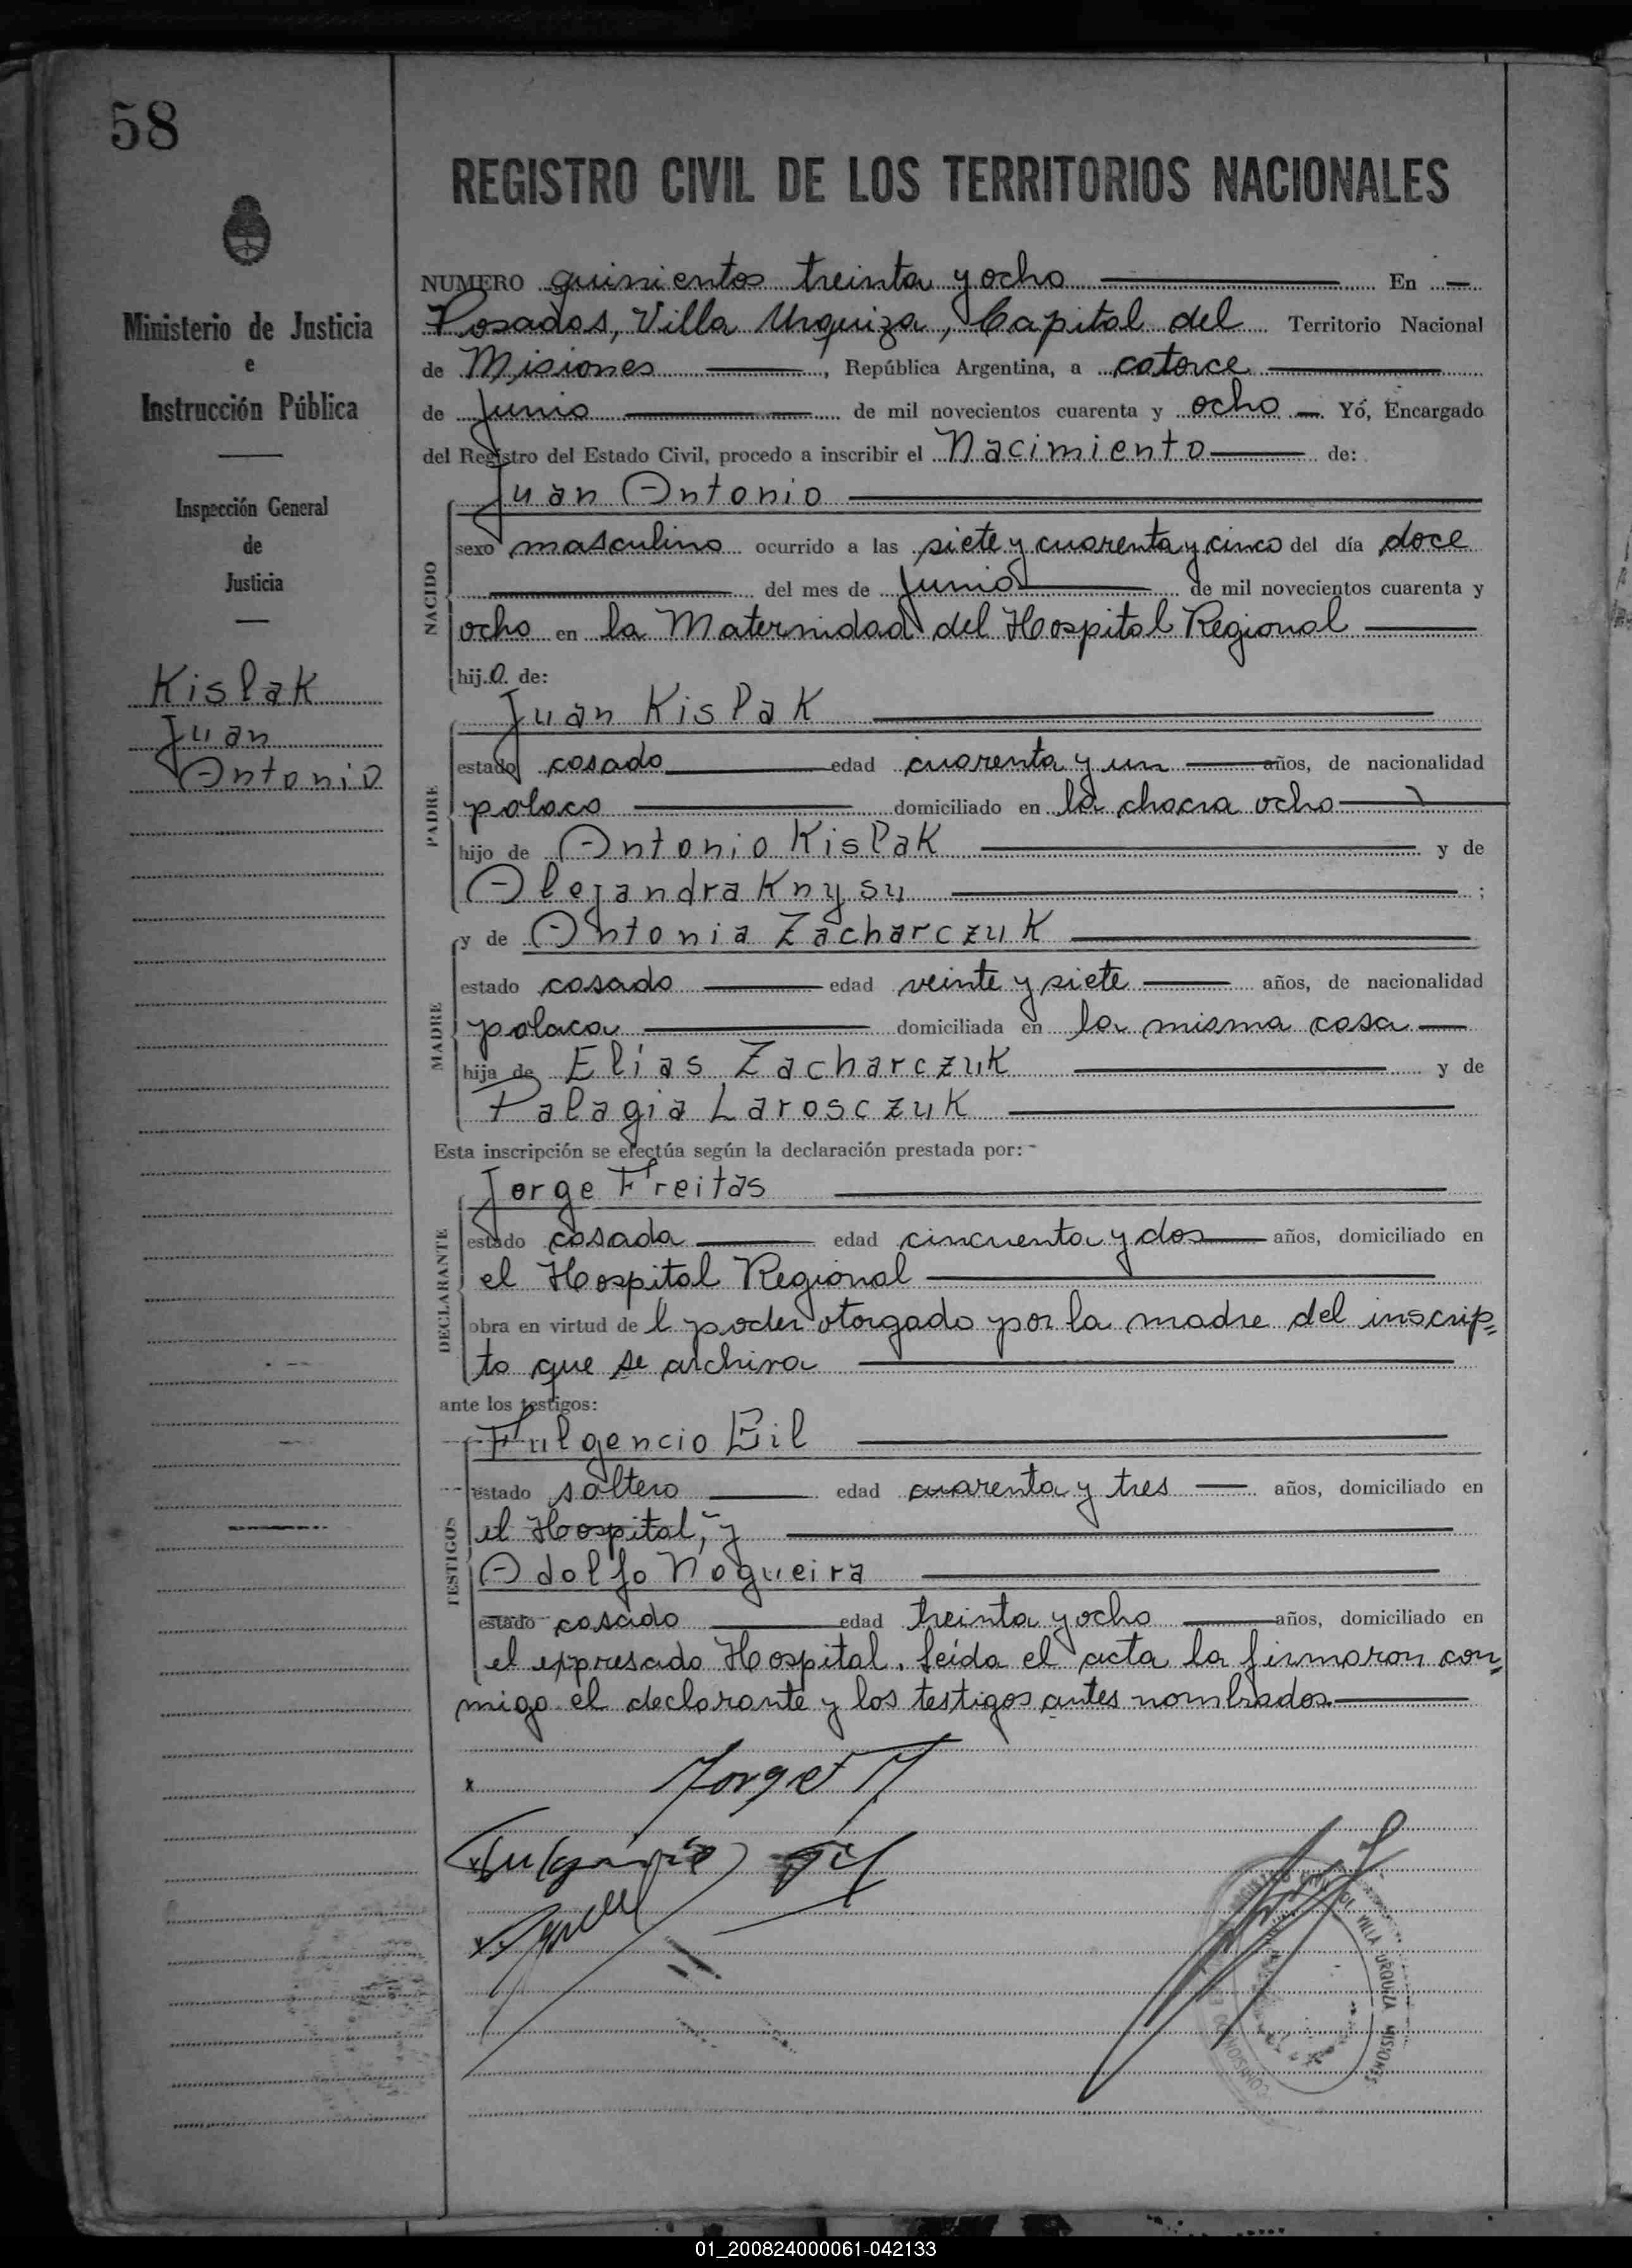 58
REGISTRO CIVIL DE LOS TERRITORIOS NACIONALES
Ministerio de Justicia
e
Instrucción Pública
Inspección General
de
Justicia
Kislak
Juan
Antonio
NUMERO quinientos treinta y ocho En
Posadas, Villa Urquiza, Capital del Territorio Nacional
de Misiones, República Argentina, a catorce
de Junio de mil novecientos cuarenta y ocho. Yó, Encargado
del Registro del Estado Civil, procedo a inscribir el Nacimiento de:
Juan Antonio
NACIDO
sexo masculino ocurrido a las siete y cuarenta y cinco del día doce
del mes de Junio de mil novecientos cuarenta y
ocho en la Maternidad del Hospital Regional
hijo de:
Juan Kislak
PADRE
estado casado edad cuarenta y un años, de nacionalidad
polaco domiciliado en la chacra ocho
hijo de Antonio Kislak y de
Alejandra Knysu;
y de Antonia Zacharczuk
MADRE
estado casado edad veinte y siete años, de nacionalidad
polaca domiciliada en la misma casa
hija de Elías Zacharczuk y de
Palagia Larosczuk
Esta inscripción se efectúa según la declaración prestada por:
Jorge Freitas
DECLARANTE
estado casada edad cincuenta y dos años, domiciliado en
el Hospital Regional
obra en virtud del poder otorgado por la madre del inscrip=
to que se archiva
ante los testigos:
Fulgencio Gil
TESTIGOS
estado soltero edad cuarenta y tres años, domiciliado en
el Hospital, y
Adolfo Nogueira
estado casado edad treinta y ocho años, domiciliado en
el expresado Hospital. Leída el acta la firmaron con=
migo el declarante y los testigos antes nombrados.
Jorge F
Fulgencio Gil
VILLA URQUIZA MISIONES
01_200824000061-042133